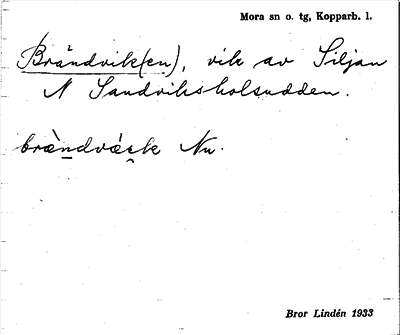 Mora sn o. tg, Kopparb. l.
Brändvik(en), vik av Siljan
N Sandviksholsudden.
Nu.
Bror Lindén 1933